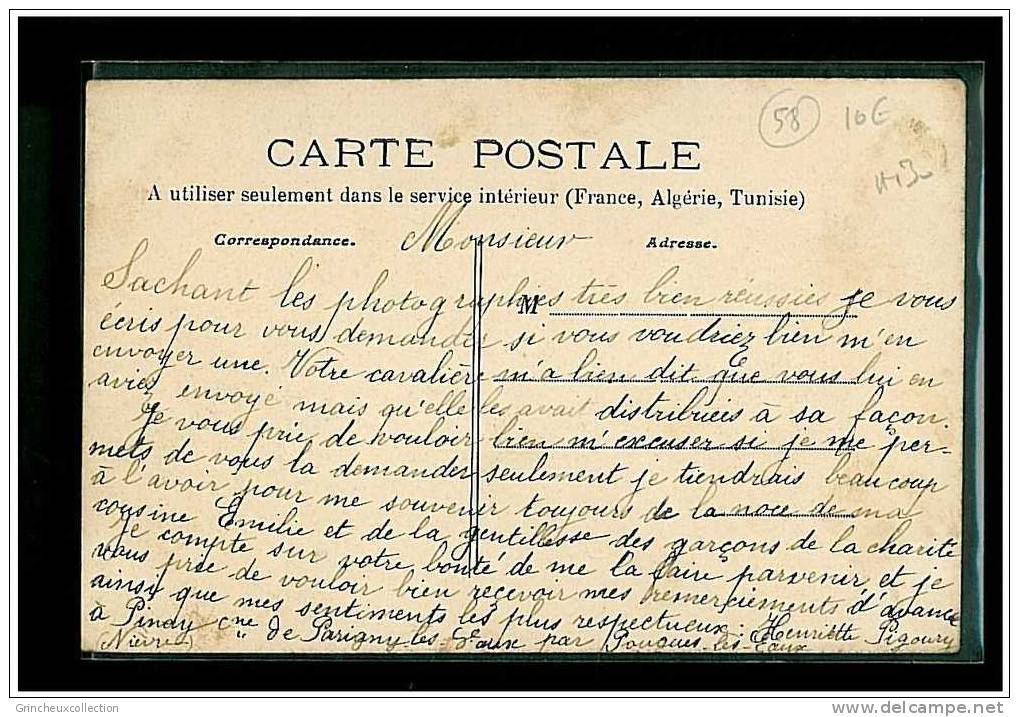 58 10E
CARTE POSTALE
A utiliser seulement dans le service intérieur (France, Algérie, Tunisie)
Correspondance. Monsieur Adresse.
M
Sachant les photographies très bien réussies je vous
écris pour vous demander si vous voudriez bien m'en
envoyer une. Votre cavalière m'a bien dit que vous lui en
aviez envoyé mais qu'elle les avait distribuées à sa façon.
Je vous prie de vouloir bien m'excuser si je me per-
mets de vous la demander seulement je tiendrais beaucoup
à l'avoir pour me souvenir toujours de la noce de ma
cousine Emilie et de la gentillesse des garçons de la charité
Je compte sur votre bonté de me la faire parvenir et je
vous prie de vouloir bien recevoir mes remerciements d'avance
ainsi que mes sentiments les plus respectueux : Henriette Pigoury
à Pinay cne de Parigny les Vaux par Pougues-les-Eaux
(Nièvre)
Grincheuxcollection
delcampe.net